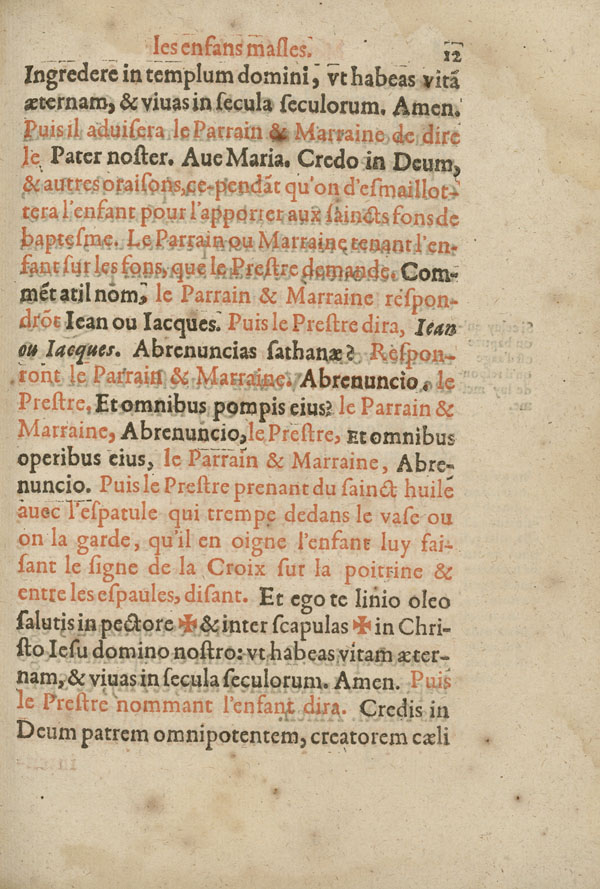 les enfans masles. 12
Ingredere in templum domini, vt habeas vitã
æternam, & viuas in secula seculorum. Amen.
Puis il aduisera le Parrain & Marraine de dire
le Pater noster. Aue Maria. Credo in Deum,
& autres oraisons, ce-pendãt qu'on d'esmaillot-
tera l'enfant pour l'apporter aux saincts fons de
baptesme. Le Parrain ou Marraine tenant l'en-
fant sur les fons, que le Prestre demande. Com-
mẽt atil nom, le Parrain & Marraine respon-
drõt Iean ou Iacques. Puis le Prestre dira, Iean
ou Iacques. Abrenuncias sathanæ? Respon-
ront le Parrain & Marraine. Abrenuncio, le
Prestre, Et omnibus pompis eius? le Parrain &
Marraine, Abrenuncio, le Prestre, Et omnibus
operibus eius, le Parrain & Marraine, Abre-
nuncio. Puis le Prestre prenant du sainct huile
auec l'espatule qui trempe dedans le vase ou
on la garde, qu'il en oigne l'enfant luy fai-
sant le signe de la Croix sur la poitrine &
entre les espaules, disant. Et ego te linio oleo
salutis in pectore ✠ & inter scapulas ✠ in Chri-
sto Iesu domino nostro: vt habeas vitam æter-
nam, & viuas in secula seculorum. Amen. Puis
le Prestre nommant l'enfant dira. Credis in
Deum patrem omnipotentem, creatorem cæli